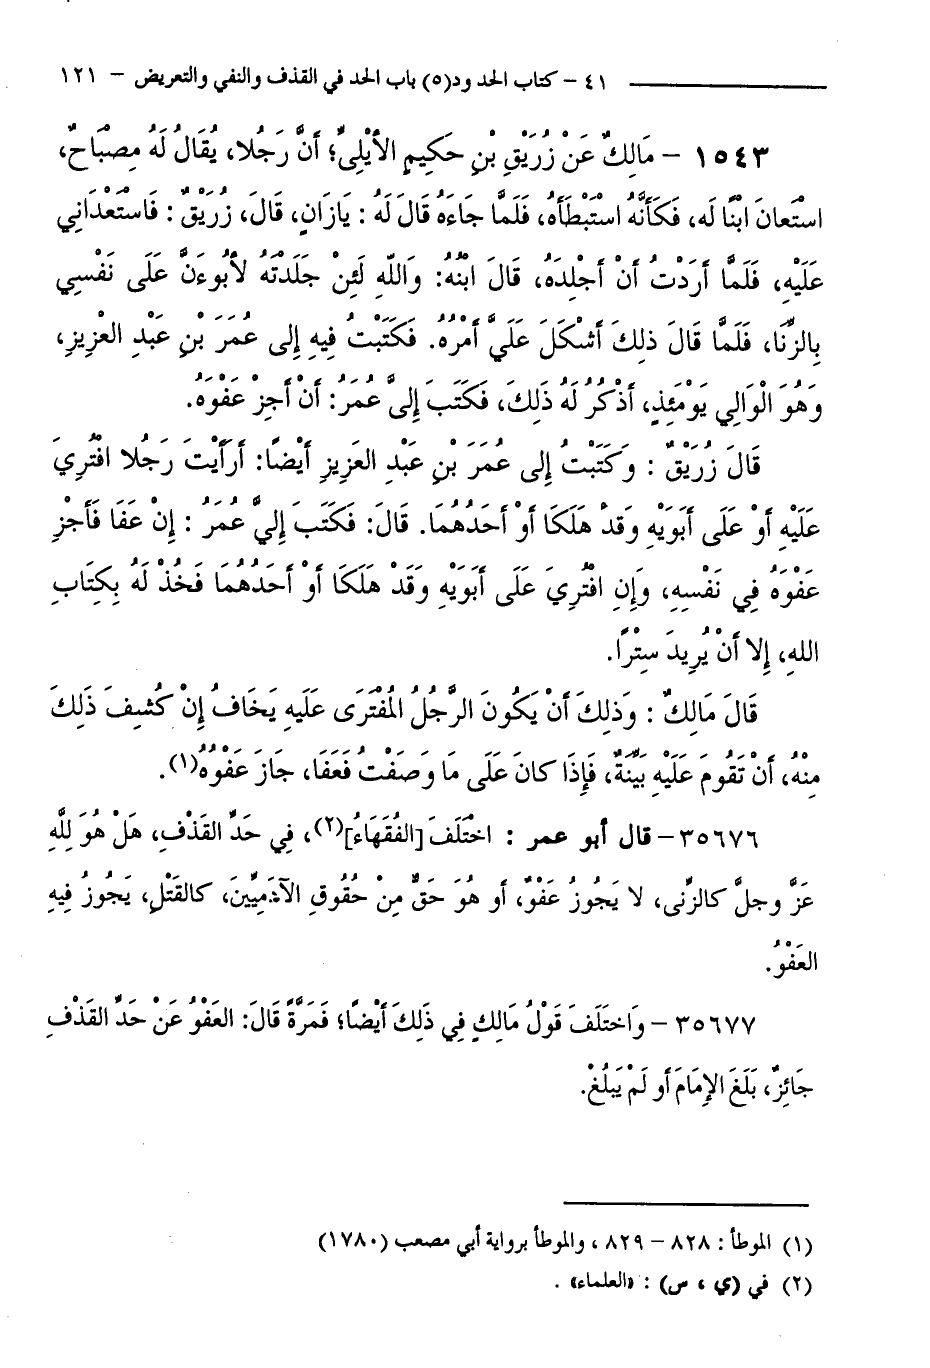 ٤١ – كتاب الحدود (٥) باب الحد في القذف والنفي والتعريض – ١٢١
١٥٤٣ – مَالِكٌ عَنْ زُرَيْقِ بْنِ حَكِيمٍ الأَيْلِيِّ؛ أَنَّ رَجُلا، يُقَالُ لَهُ مِصْبَاحٌ،
اسْتَعانَ ابْنًا لَه، فَكَأنَّهُ اسْتَبْطَأَهُ، فَلَمَّا جَاءَهُ قَالَ لَهُ : يازَانٍ، قَالَ، زُرَيْقٌ : فَاسْتَعْدَانِي
عَلَيْهِ، فَلَمَّا أَرَدْتُ أَنْ أَجْلِدَهُ، قَالَ ابْنُهُ: وَاللَّهِ لَئِنْ جَلَدْتَهُ لأَبُوءَنَّ عَلَى نَفْسِي
بِالزِّنَا، فَلَمَّا قَالَ ذلِكَ أَشْكَلَ عَلَيَّ أَمْرُهُ. فَكَتَبْتُ فِيهِ إِلى عُمَرَ بْنِ عَبْدِ العَزِيزِ،
وَهُوَ الْوَالِي يَوْمَئِذٍ، أَذْكُرُ لَهُ ذَلِكَ، فَكَتَبَ إِلَيَّ عُمَرُ: أَنْ أَجِزْ عَفْوَهُ.
قَالَ زُرَيْقٌ : وَكَتَبْتُ إِلى عُمَرَ بْنِ عَبْدِ العَزِيزِ أَيْضًا: أَرَأَيْتَ رَجُلا افْتُرِيَ
عَلَيْهِ أَوْ عَلَى أَبَوَيْهِ وَقَدْ هَلَكَا أَوْ أَحَدُهُمَا. قَالَ: فَكَتَبَ إِلَيَّ عُمَرُ : إِنْ عَفَا فَأَجْزِ
عَفْوَهُ فِي نَفْسِهِ، وَإِنِ افْتُرِيَ عَلَى أَبَوَيْهِ وَقَدْ هَلَكَا أَوْ أَحَدُهُمَا فَخُذْ لَهُ بِكِتَابِ
اللهِ، إِلا أَنْ يُرِيدَ سِتْرًا.
قَالَ مَالِكٌ : وَذلِكَ أَنْ يَكُونَ الرَّجُلُ المُفْتَرَى عَلَيهِ يَخَافُ إِنْ كُشِفَ ذَلِكَ
مِنْهُ، أَنْ تَقُومَ عَلَيْهِ بَيِّنَةٌ، فَإِذَا كانَ عَلَى مَا وَصَفْتُ فَعَفَا، جَازَ عَفْوُهُ(١).
٣٥٦٧٦– قال أبو عمر : اخْتَلَفَ [الفُقَهَاءُ](٢)، فِي حَدِّ القَذْفِ، هَلْ هُوَ لِلَّهِ
عَزَّ وجلَّ كالزِّنى، لا يَجُوزُ عَفْوٌ، أو هُوَ حَقٌّ مِنْ حُقُوقِ الآدَمِيِّينَ، كالقَتْلِ، يَجُوزُ فِيهِ
العَفْوُ.
٣٥٦٧٧ – وَاخْتَلَفَ قَوْلُ مَالِكٍ فِي ذَلِكَ أَيْضًا؛ فَمَرَّةً قَالَ: العَفْوُ عَنْ حَدِّ القَذْفِ
جَائِزٌ، بَلَغَ الإِمَامَ أو لَمْ يَبْلُغْ.
(١) الموطأ : ٨٢٨ – ٨٢٩ ، والموطأ برواية أبي مصعب (١٧٨٠)
(٢) في (ي ، س) : «العلماء» .